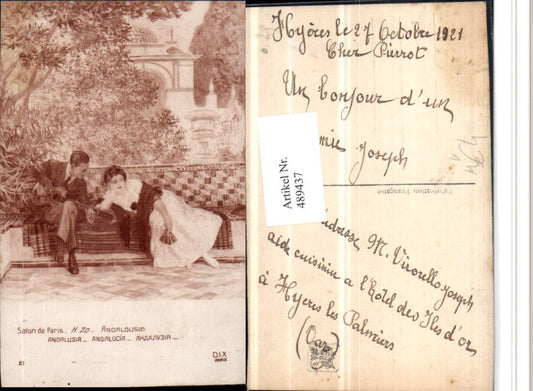 Salon de Paris.. H. Zo.. ANDALOUSIE
ANDALUSIA _ ANDALUCÍA _ АНДАЛУЗІА _
21
DIX
PARIS
Hyères le 27 Octobre 1921
Cher Pierrot
Un bonjour d'un
Joseph
Artikel Nr.
489437
Fabrication Française
adresse M. Virorello Joseph
aide cuisinier a l'hôtel des Iles d'or
à Hyeres les Palmiers
(Var)